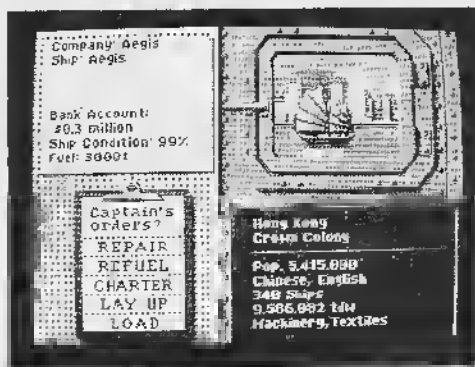 Company: Aegis
Ship: Aegis
Bank Account:
$0.3 million
Ship Condition: 99%
Fuel: 3000t
Captain's
orders?
REPAIR
REFUEL
CHARTER
LAY UP
LOAD
Hong Kong
Crown Colony
Pop. 5,415,000
Chinese, English
340 Ships
tdw
Machinery, Textiles